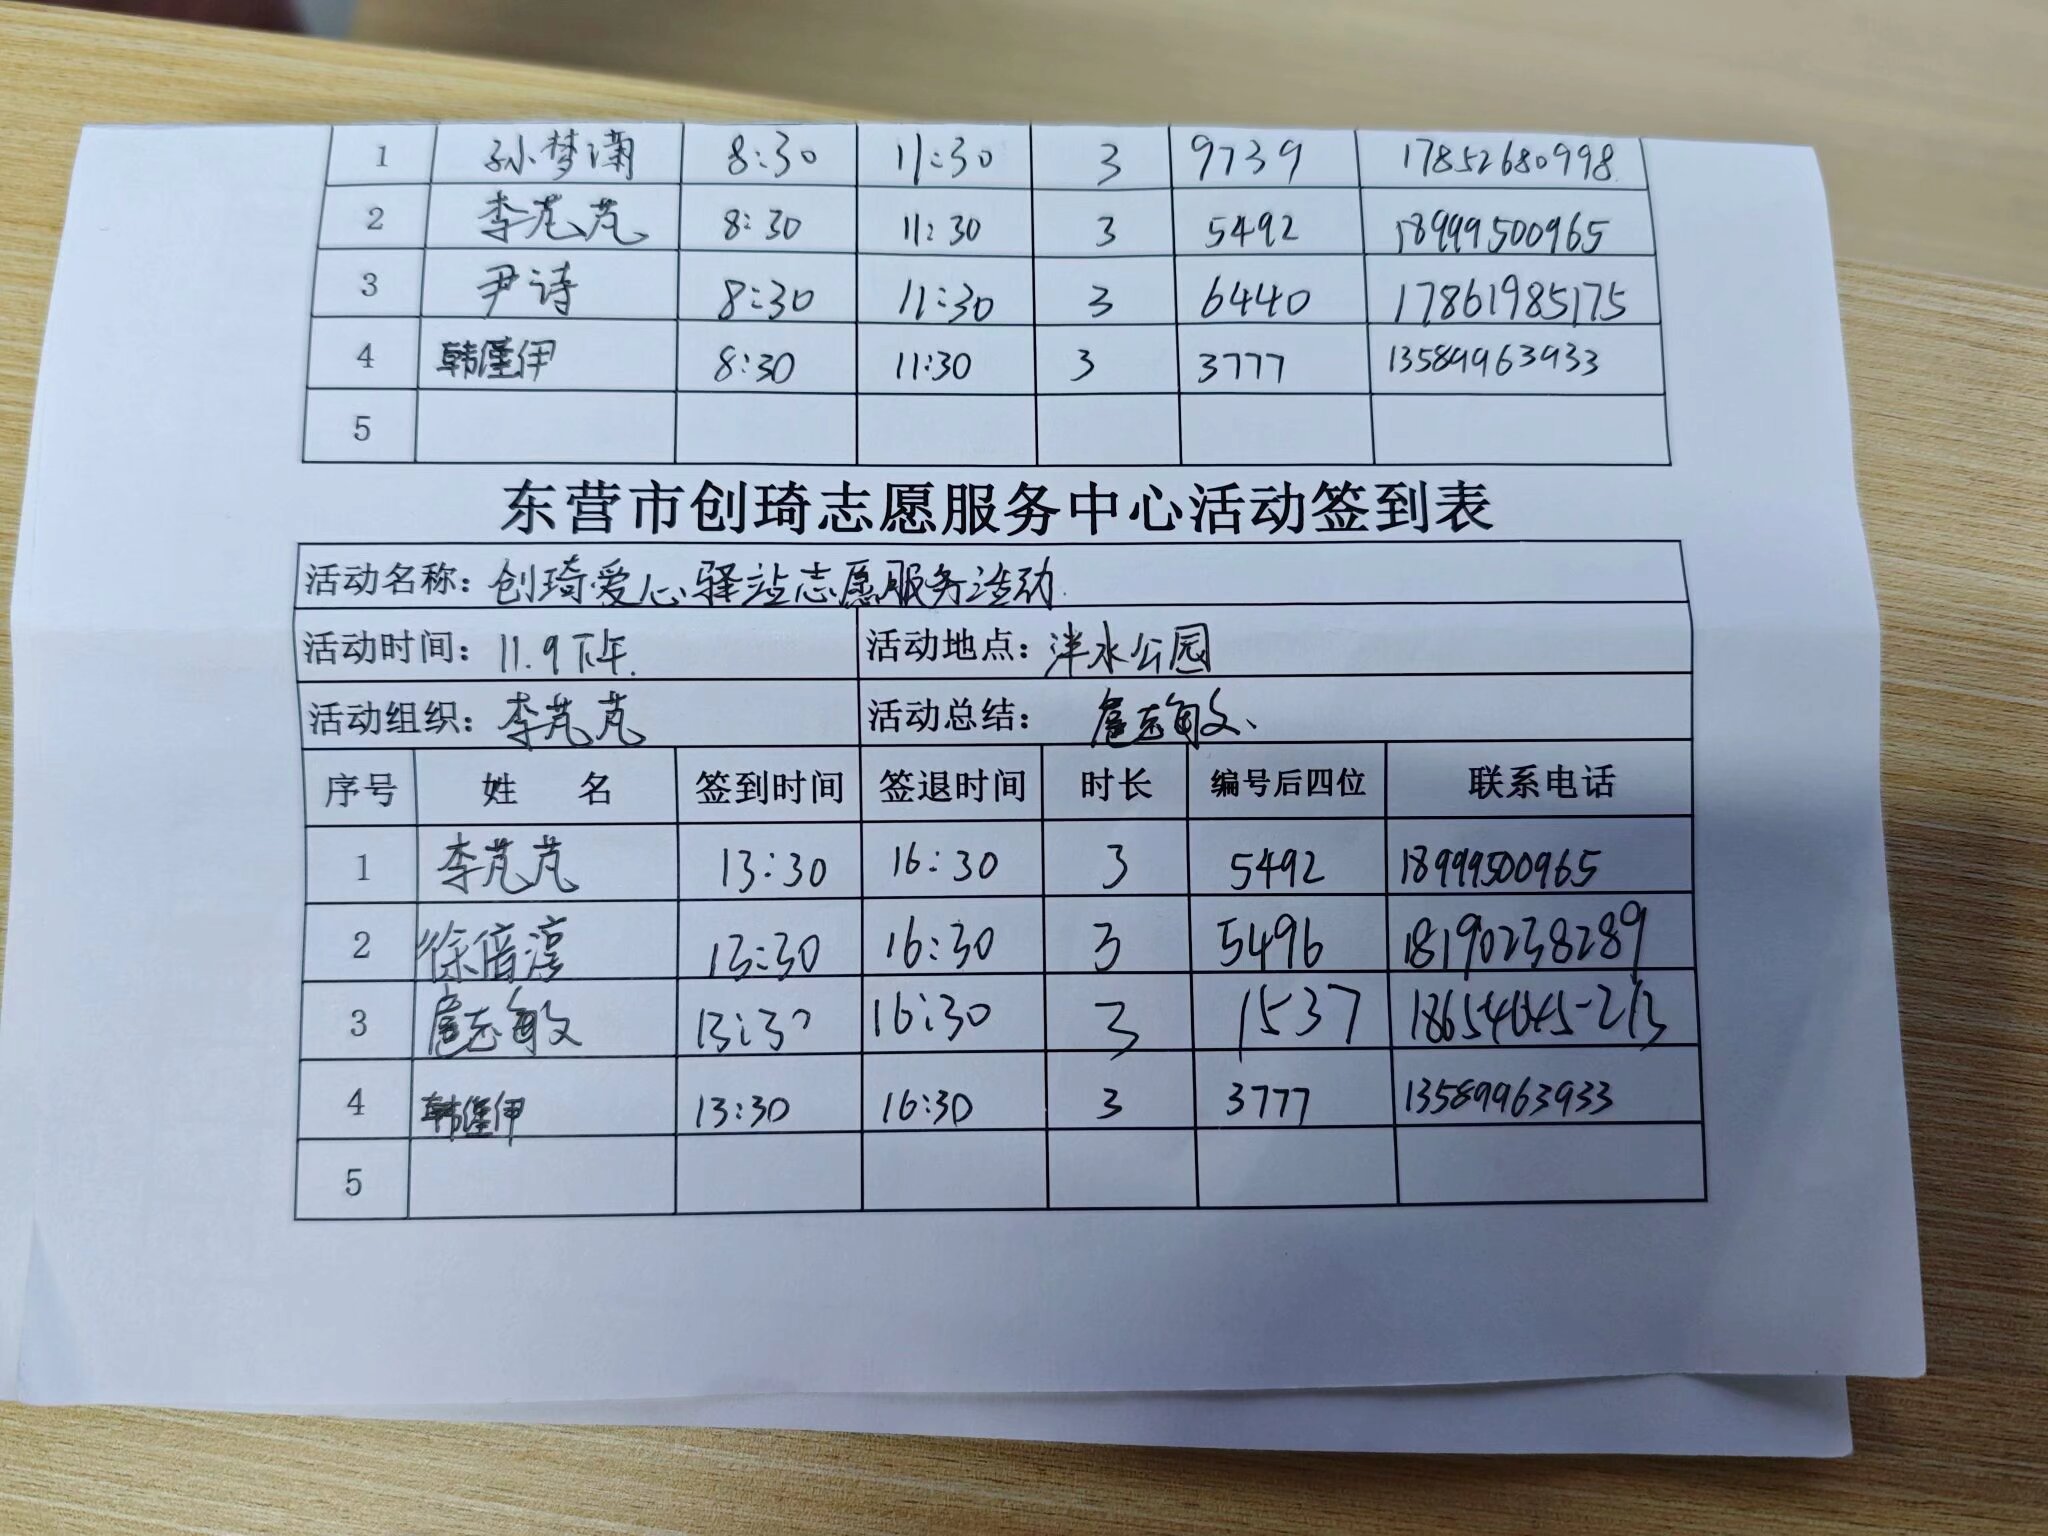 1 孙梦 8:30 11:30 3 9739 17852680998
2 李芃芃 8:30 11:30 3 5492 18999500965
3 尹诗 8:30 11:30 3 6440 17861985175
4 韩僅伊 8:30 11:30 3 3777 13589963933
5
东营市创琦志愿服务中心活动签到表
活动名称: 创琦爱心驿站志愿服务活动
活动时间: 11.9下午. 活动地点: 泮水公园
活动组织: 李芃芃 活动总结: 扈志敏、
序号 姓 名 签到时间 签退时间 时长 编号后四位 联系电话
1 李芃芃 13:30 16:30 3 5492 18999500965
2 徐倍淳 13:30 16:30 3 5496 18190238289
3 扈志敏 13:30 16:30 3 1537
4 韩僅伊 13:30 16:30 3 3777 13589963933
5